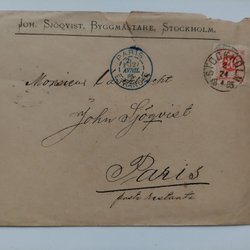 JOH. SJÖQVIST, BYGGMÄSTARE, STOCKHOLM.
PARIS
ETRANGER
STOCKHOLM
Monsieur
John Sjöqvist
Paris
poste restante